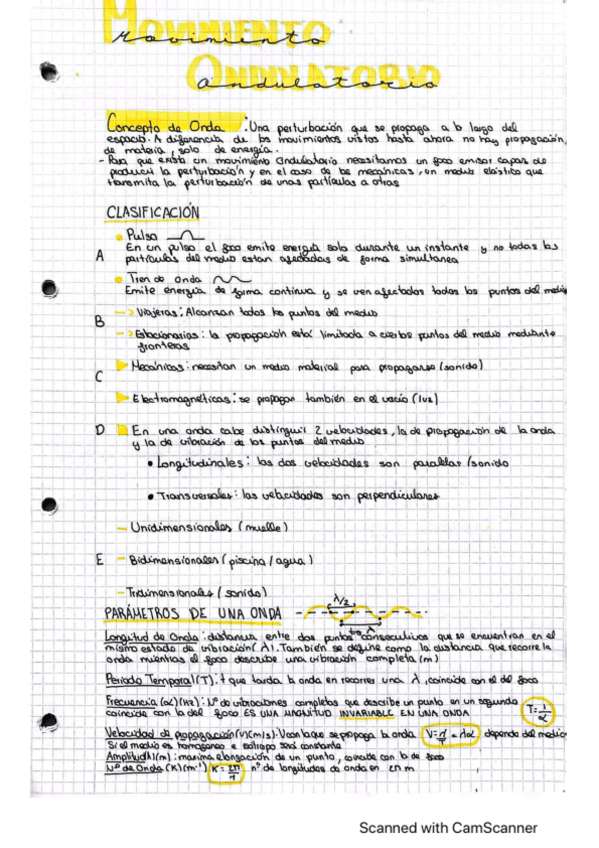 MOVIMIENTO
Movimiento
ONDULATORIO
ondulatorio
Concepto de Onda: Una perturbación que se propaga a lo largo del
espacio. A diferencia de los movimientos vistos hasta ahora no hay propagación,
de materia, solo de energía.
- Para que exista un movimiento ondulatorio necesitamos un foco emisor capaz de
producir la perturbación y en el caso de las mecánicas, un medio elástico que
transmita la perturbación de unas partículas a otras
CLASIFICACIÓN
Pulso
En un pulso el foco emite energía solo durante un instante y no todas las
A partículas del medio estan afectadas de forma simultanea
Tren de onda
Emite energía de forma continua y se ven afectados todos los puntos del medio
--> Viajeras: Alcanzan todos los puntos del medio
B
--> Estacionarias: la propagación está limitada a ciertos puntos del medio mediante
fronteras
Mecánicas: necesitan un medio material para propagarse (sonido)
C
Electromagnéticas: se propagan también en el vacío (luz)
D En una onda cabe distinguir 2 velocidades, la de propagación de la onda
y la de vibración de los puntos del medio
• Longitudinales: las dos velocidades son paralelas/sonido
• Transversales: las velocidades son perpendiculares
- Unidimensionales (muelle)
E - Bidimensionales (piscina/agua)
- Tridimensionales (sonido)
λ/2
PARÁMETROS DE UNA ONDA
λ
Longitud de Onda: distancia entre dos puntos consecutivos que se encuentran en el
mismo estado de vibración (λ). También se define como la distancia que recorre la
onda mientras el foco describe una vibración completa (m)
Período Temporal (T): t que tarda la onda en recorrer una λ, coincide con el del foco
Frecuencia (α) (Hz): Nº de vibraciones completas que describe un punto en un segundo
coincide con la del foco ES UNA MAGNITUD INVARIABLE EN UNA ONDA T=1/α
Velocidad de propagación (V) (m/s): V con la que se propaga la onda V=λ/T = λα depende del medio
Si el medio es homogeneo e isótropo será constante
Amplitud (A) (m): maxima elongación de un punto, coincide con la de foco
Nº de Onda (K) (m⁻¹) K=2π/λ nº de longitudes de onda en 2π m
Scanned with CamScanner